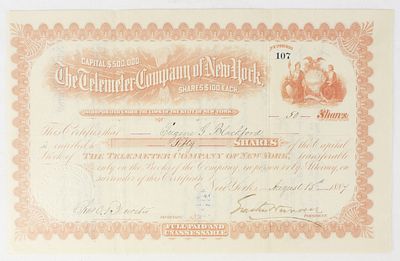 NUMBER
107
CAPITAL $500,000
The Telemeter Company of New York,
SHARES $100 EACH.
INCORPORATED UNDER THE LAWS OF THE STATE OF NEW YORK.
50 Shares
This Certifies that Eugene G. Blackford
is entitled to Fifty SHARES of the Capital
Stock of THE TELEMETER COMPANY OF NEW YORK, transferable
only on the Books of the Company, in person or by Attorney, on
surrender of this Certificate. New York, August 15 1887
Chas
SECRETARY
PRESIDENT
FULL PAID AND
UNASSESSABLE.